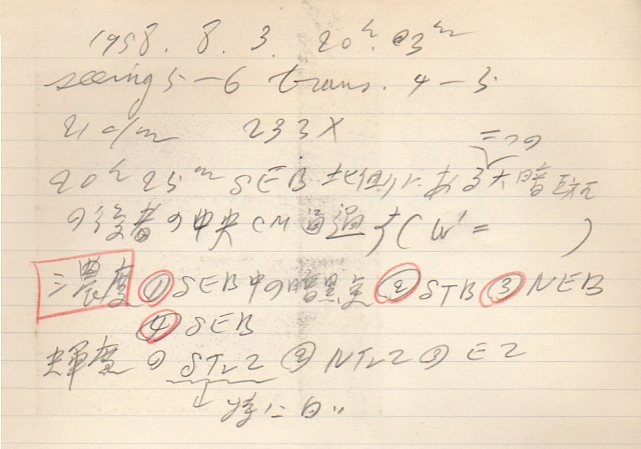 1958. 8. 3. 20h. 03m
seeing 5-6 trans. 4-5
21c/m 233X
二つの
20h25m SEB 北側にある大暗斑
の後者の中央CM通過す(W'= )
濃度 ① SEB中の暗黒点 ② STB ③ NEB
④ SEB
輝度 ① STrZ ② NTrZ ③ EZ
↓特に白い